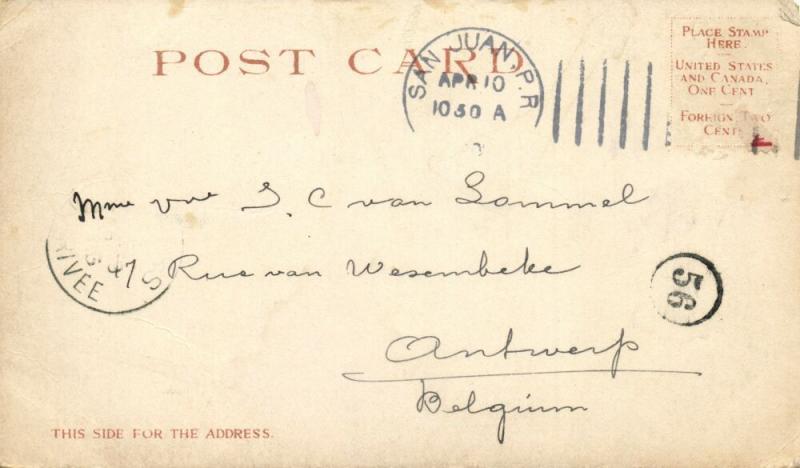 POST CARD
SAN JUAN, P.R
APR 10
1030 A
PLACE STAMP
HERE.
UNITED STATES
AND CANADA,
ONE CENT
FOREIGN, TWO
CENTS
Mme vve S. C van Lommel
47 Rue van Wesembeke
56
Antwerp
Belgium
THIS SIDE FOR THE ADDRESS.